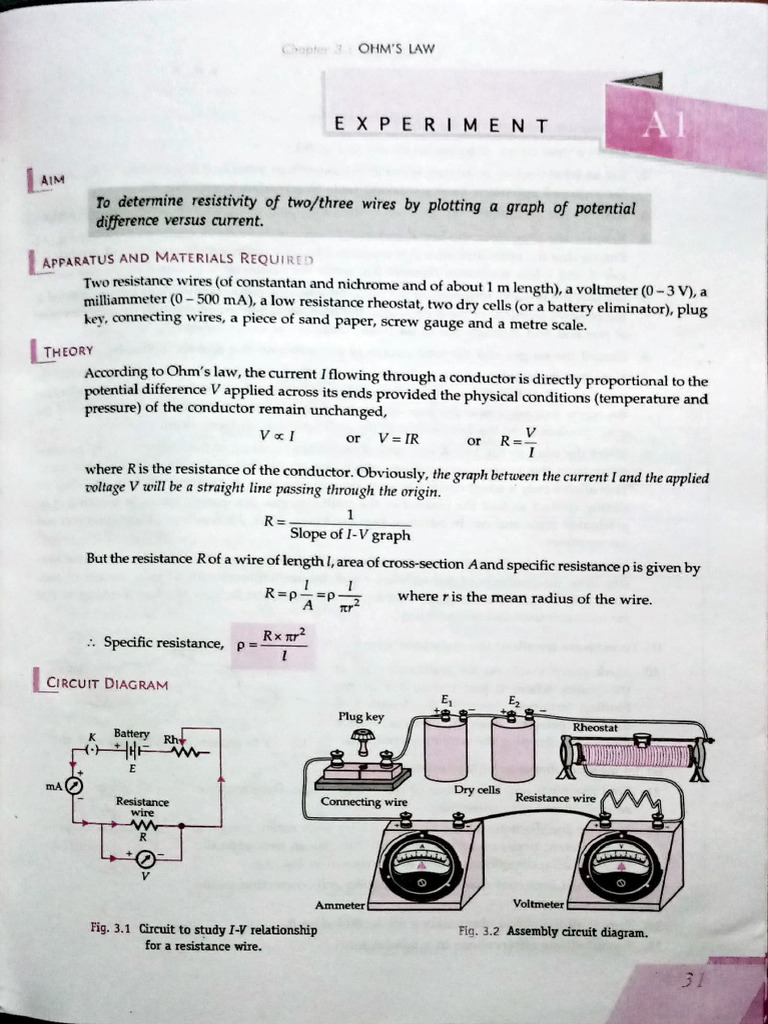 Chapter 3 : OHM'S LAW
EXPERIMENT
A1
AIM
To determine resistivity of two/three wires by plotting a graph of potential
difference versus current.
APPARATUS AND MATERIALS REQUIRED
Two resistance wires (of constantan and nichrome and of about 1 m length), a voltmeter (0 – 3 V), a
milliammeter (0 – 500 mA), a low resistance rheostat, two dry cells (or a battery eliminator), plug
key, connecting wires, a piece of sand paper, screw gauge and a metre scale.
THEORY
According to Ohm's law, the current I flowing through a conductor is directly proportional to the
potential difference V applied across its ends provided the physical conditions (temperature and
pressure) of the conductor remain unchanged,
V ∝ I or V = IR or R = V/I
where R is the resistance of the conductor. Obviously, the graph between the current I and the applied
voltage V will be a straight line passing through the origin.
R = 1/Slope of I-V graph
But the resistance R of a wire of length l, area of cross-section A and specific resistance ρ is given by
R = ρ l/A = ρ l/πr² where r is the mean radius of the wire.
∴ Specific resistance, ρ = R × πr²/l
CIRCUIT DIAGRAM
K
Battery
Rh
+ −
E
mA
+
−
Resistance
wire
R
+ −
V
Fig. 3.1 Circuit to study I-V relationship
for a resistance wire.
Plug key
E₁
+ −
E₂
+ −
Rheostat
Dry cells
Connecting wire
Resistance wire
A
V
Ammeter
Voltmeter
Fig. 3.2 Assembly circuit diagram.
31